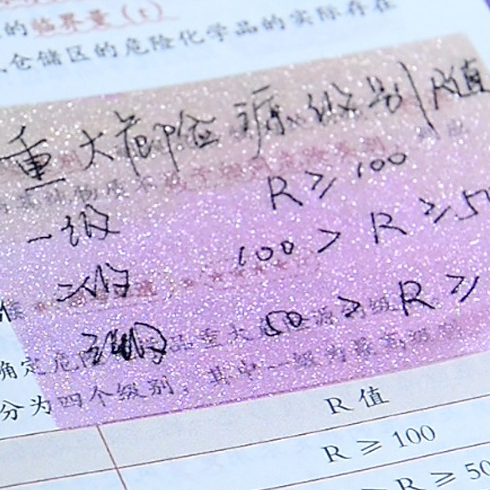 的临界量（t）
仓储区的危险化学品的实际存在
重大危险源级别 R值
一级 R≥100
二级 100>R≥5
三级 50>R≥
确定危险 品重大 源的级
分为四个级别，其中一级为最高级别
R 值
R≥100
R≥50